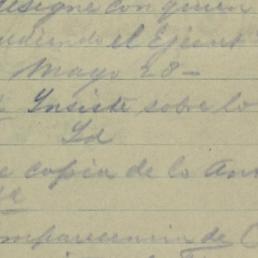 designe con quien
udiendo el Ejecut
Mayo 28-
Ynsiste sobre lo
Yd
e copia de lo An
omparecencia de C